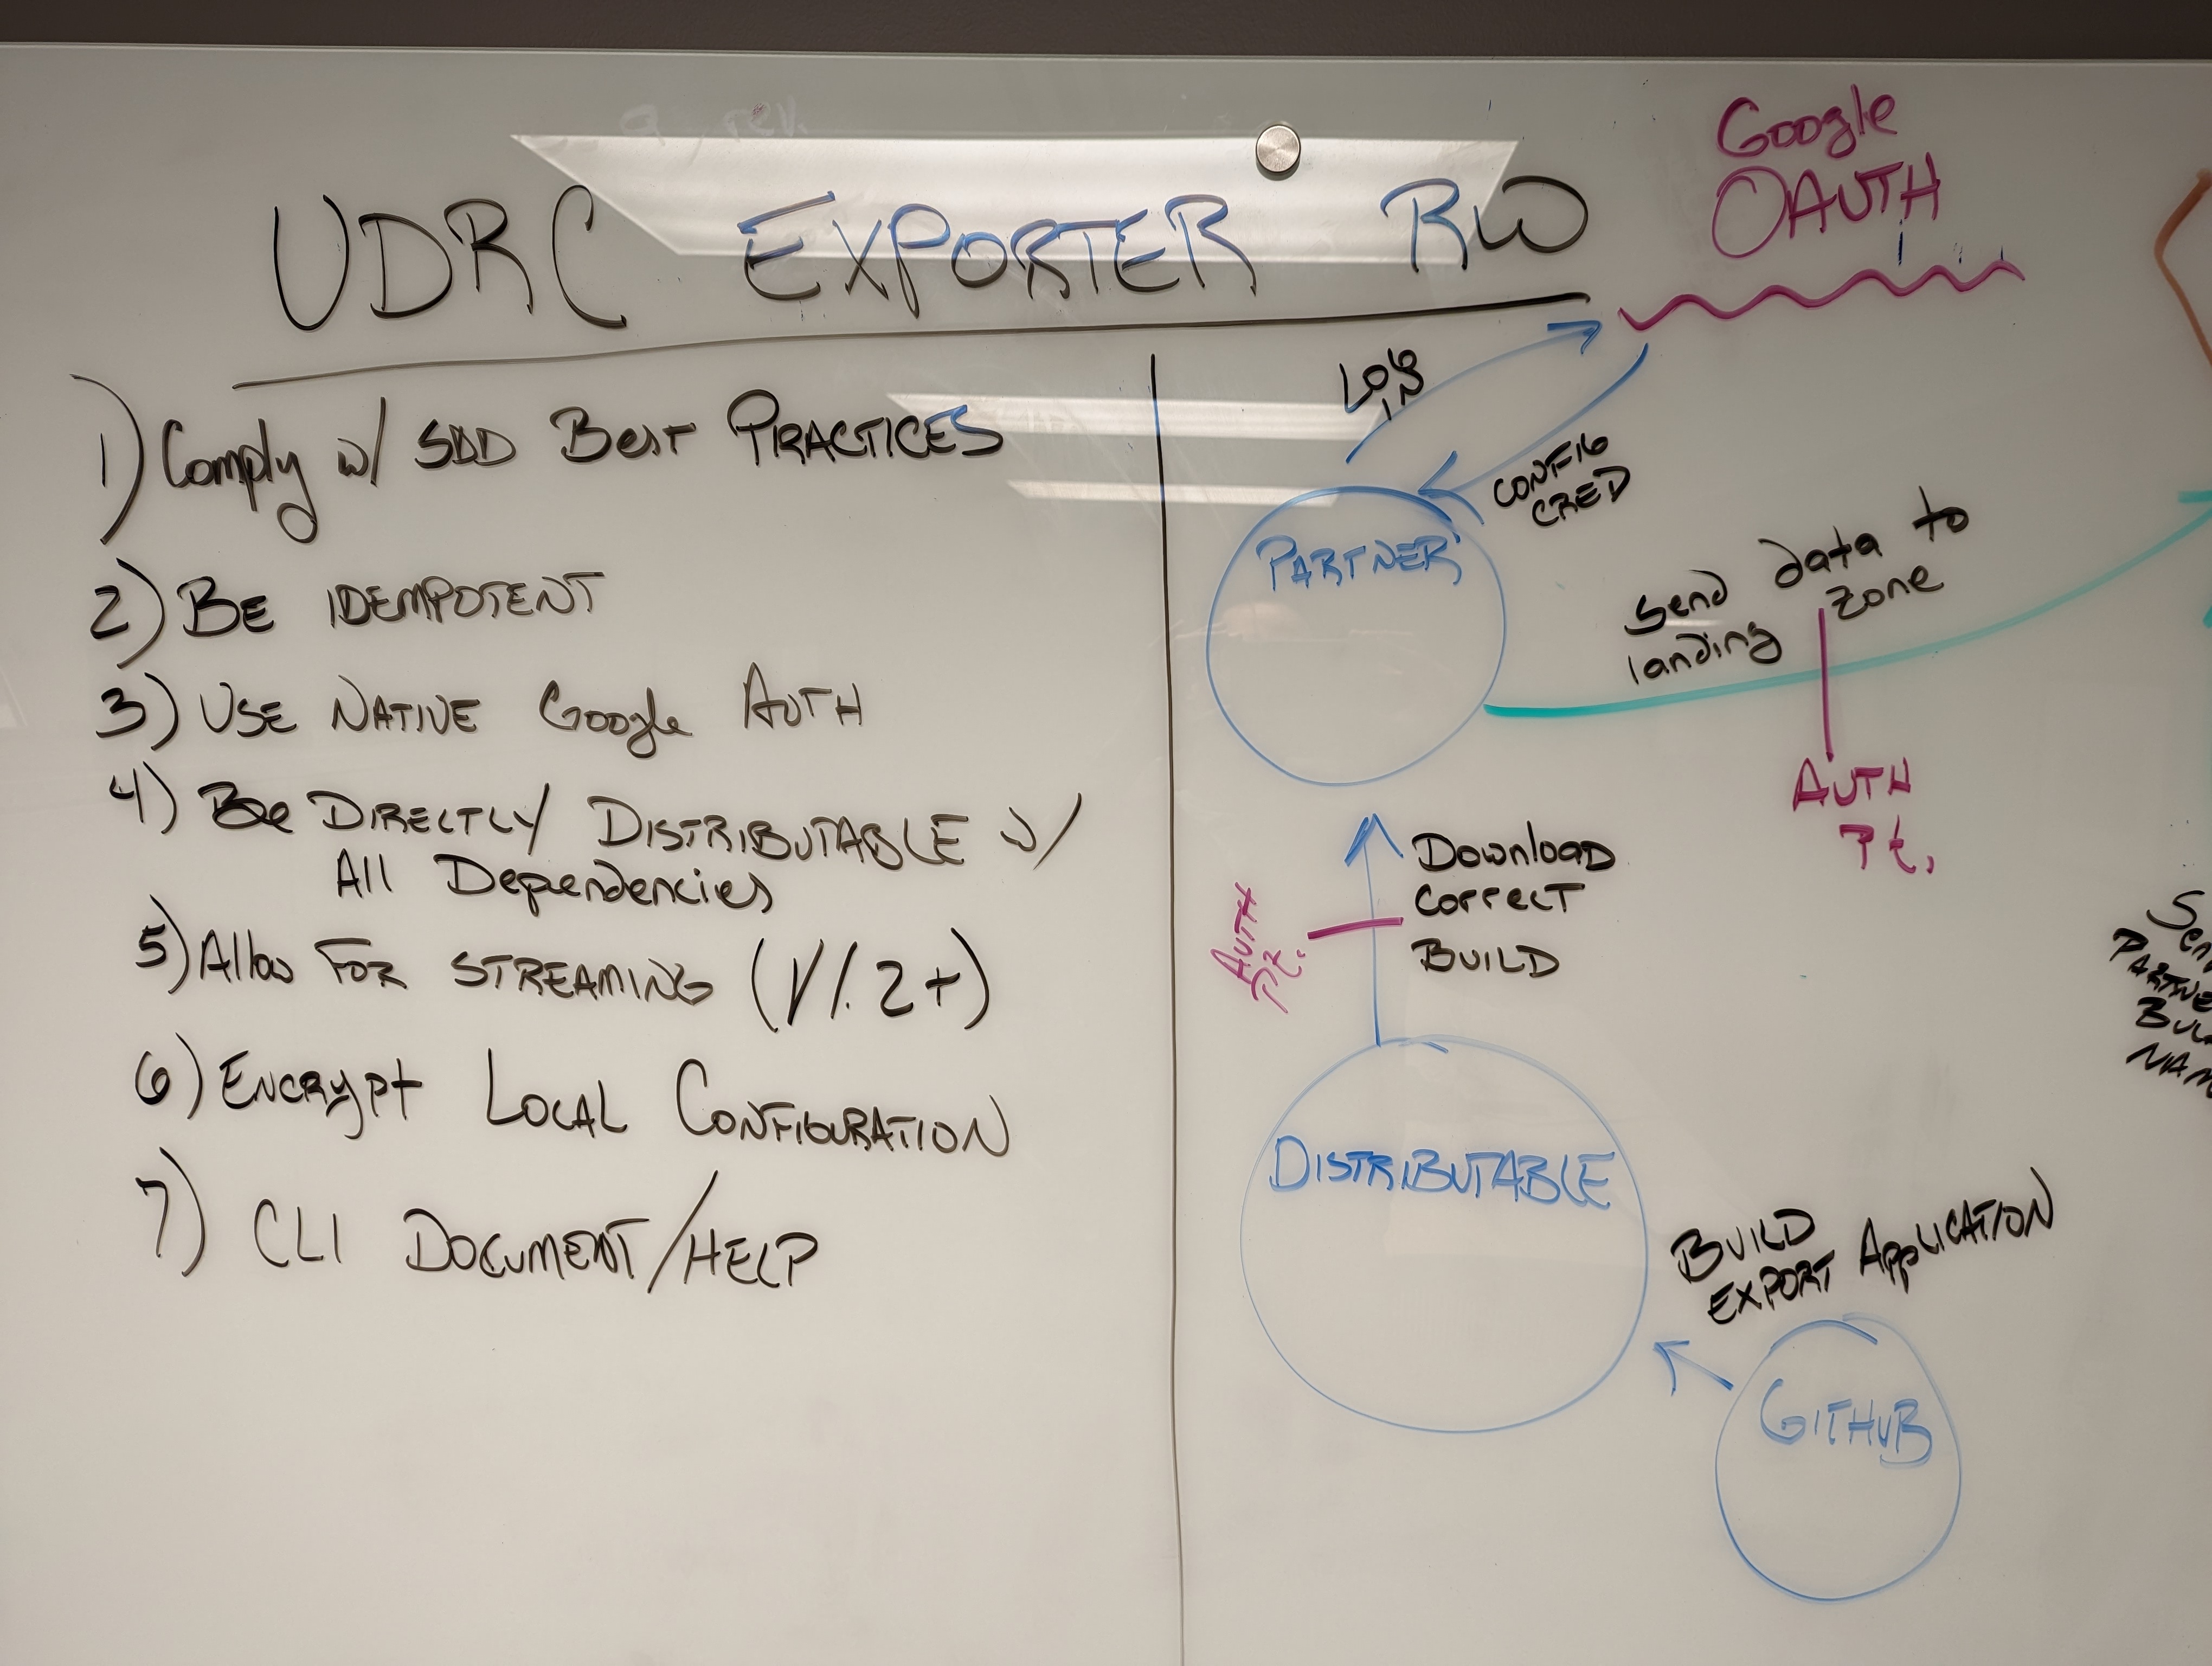 UDRC EXPORTER RW
1) Comply w/ SDD Best PRACTICES
2) BE IDEMPOTENT
3) USE NATIVE Google AUTH
4) Be DIRECTLY DISTRIBUTABLE w/
All Dependencies
5) Allow FOR STREAMING (V1.2+)
6) ENCRYPT LOCAL CONFIGURATION
7) CLI DOCUMENT/HELP
Google
OAUTH
LOG
IN
CONFIG
CRED
PARTNER
Send data to
landing zone
AUTH
Pt.
Download
Correct
BUILD
AUTH
Pt.
DISTRIBUTABLE
BUILD
EXPORT Application
GITHUB